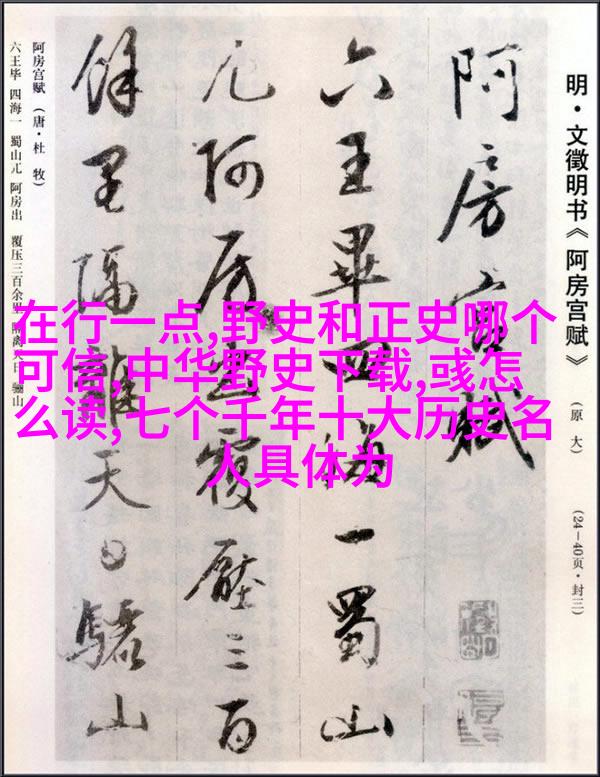 明·文徵明书《阿房宫赋》 (原大) (24—40页·封三)
阿房宫賦
六王畢四海一蜀山
兀阿房出覆壓三百
餘里隔離天日驪山
阿房宫赋(唐·杜牧)
六王毕 四海一 蜀山兀 阿房出 覆压三百余里 隔离天日 骊山
在行一点,野史和正史哪个
可信,中华野史下载,彧怎
么读,七个千年十大历史名
人具体为